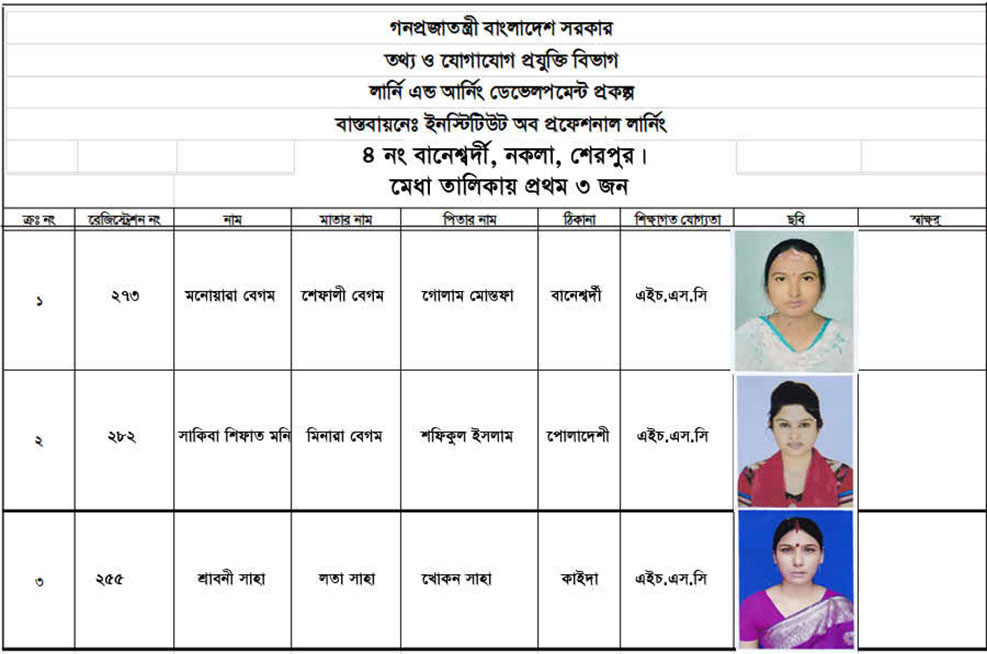 গনপ্রজাতন্ত্রী বাংলাদেশ সরকার
তথ্য ও যোগাযোগ প্রযুক্তি বিভাগ
লার্নি এন্ড আর্নিং ডেভেলপমেন্ট প্রকল্প
বাস্তবায়নেঃ ইনস্টিটিউট অব প্রফেশনাল লার্নিং
৪ নং বানেশ্বর্দী, নকলা, শেরপুর।
মেধা তালিকায় প্রথম ৩ জন
ক্রঃ নং রেজিস্ট্রেশন নং নাম মাতার নাম পিতার নাম ঠিকানা শিক্ষাগত যোগ্যতা ছবি স্বাক্ষর
১ ২৭৩ মনোয়ারা বেগম শেফালী বেগম গোলাম মোস্তফা বানেশ্বর্দী এইচ.এস.সি
২ ২৮২ সাকিবা শিফাত মনি মিনারা বেগম শফিকুল ইসলাম পোলাদেশী এইচ.এস.সি
৩ ২৫৫ শ্রাবনী সাহা লতা সাহা খোকন সাহা কাইদা এইচ.এস.সি